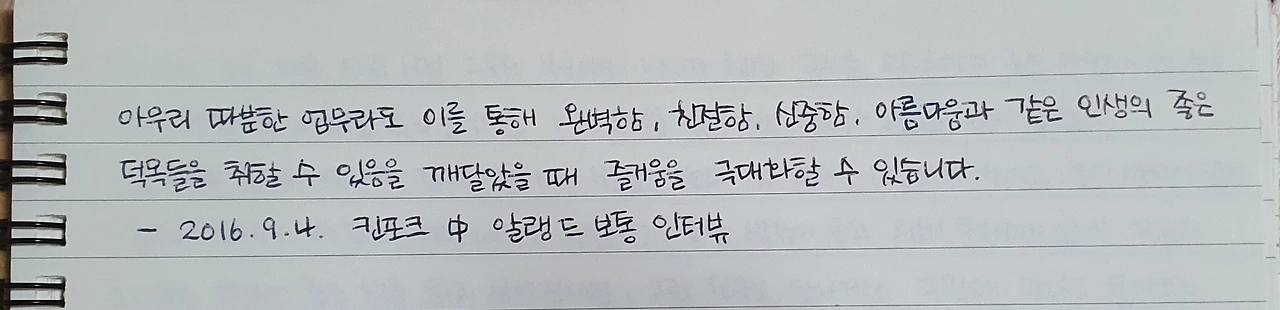 아무리 따분한 업무라도 이를 통해 완벽함, 친절함, 신중함, 아름다움과 같은 인생의 좋은
덕목들을 취할 수 있음을 깨달았을 때 즐거움을 극대화할 수 있습니다.
- 2016.9.4. 킨포크 中 알랭드 보통 인터뷰